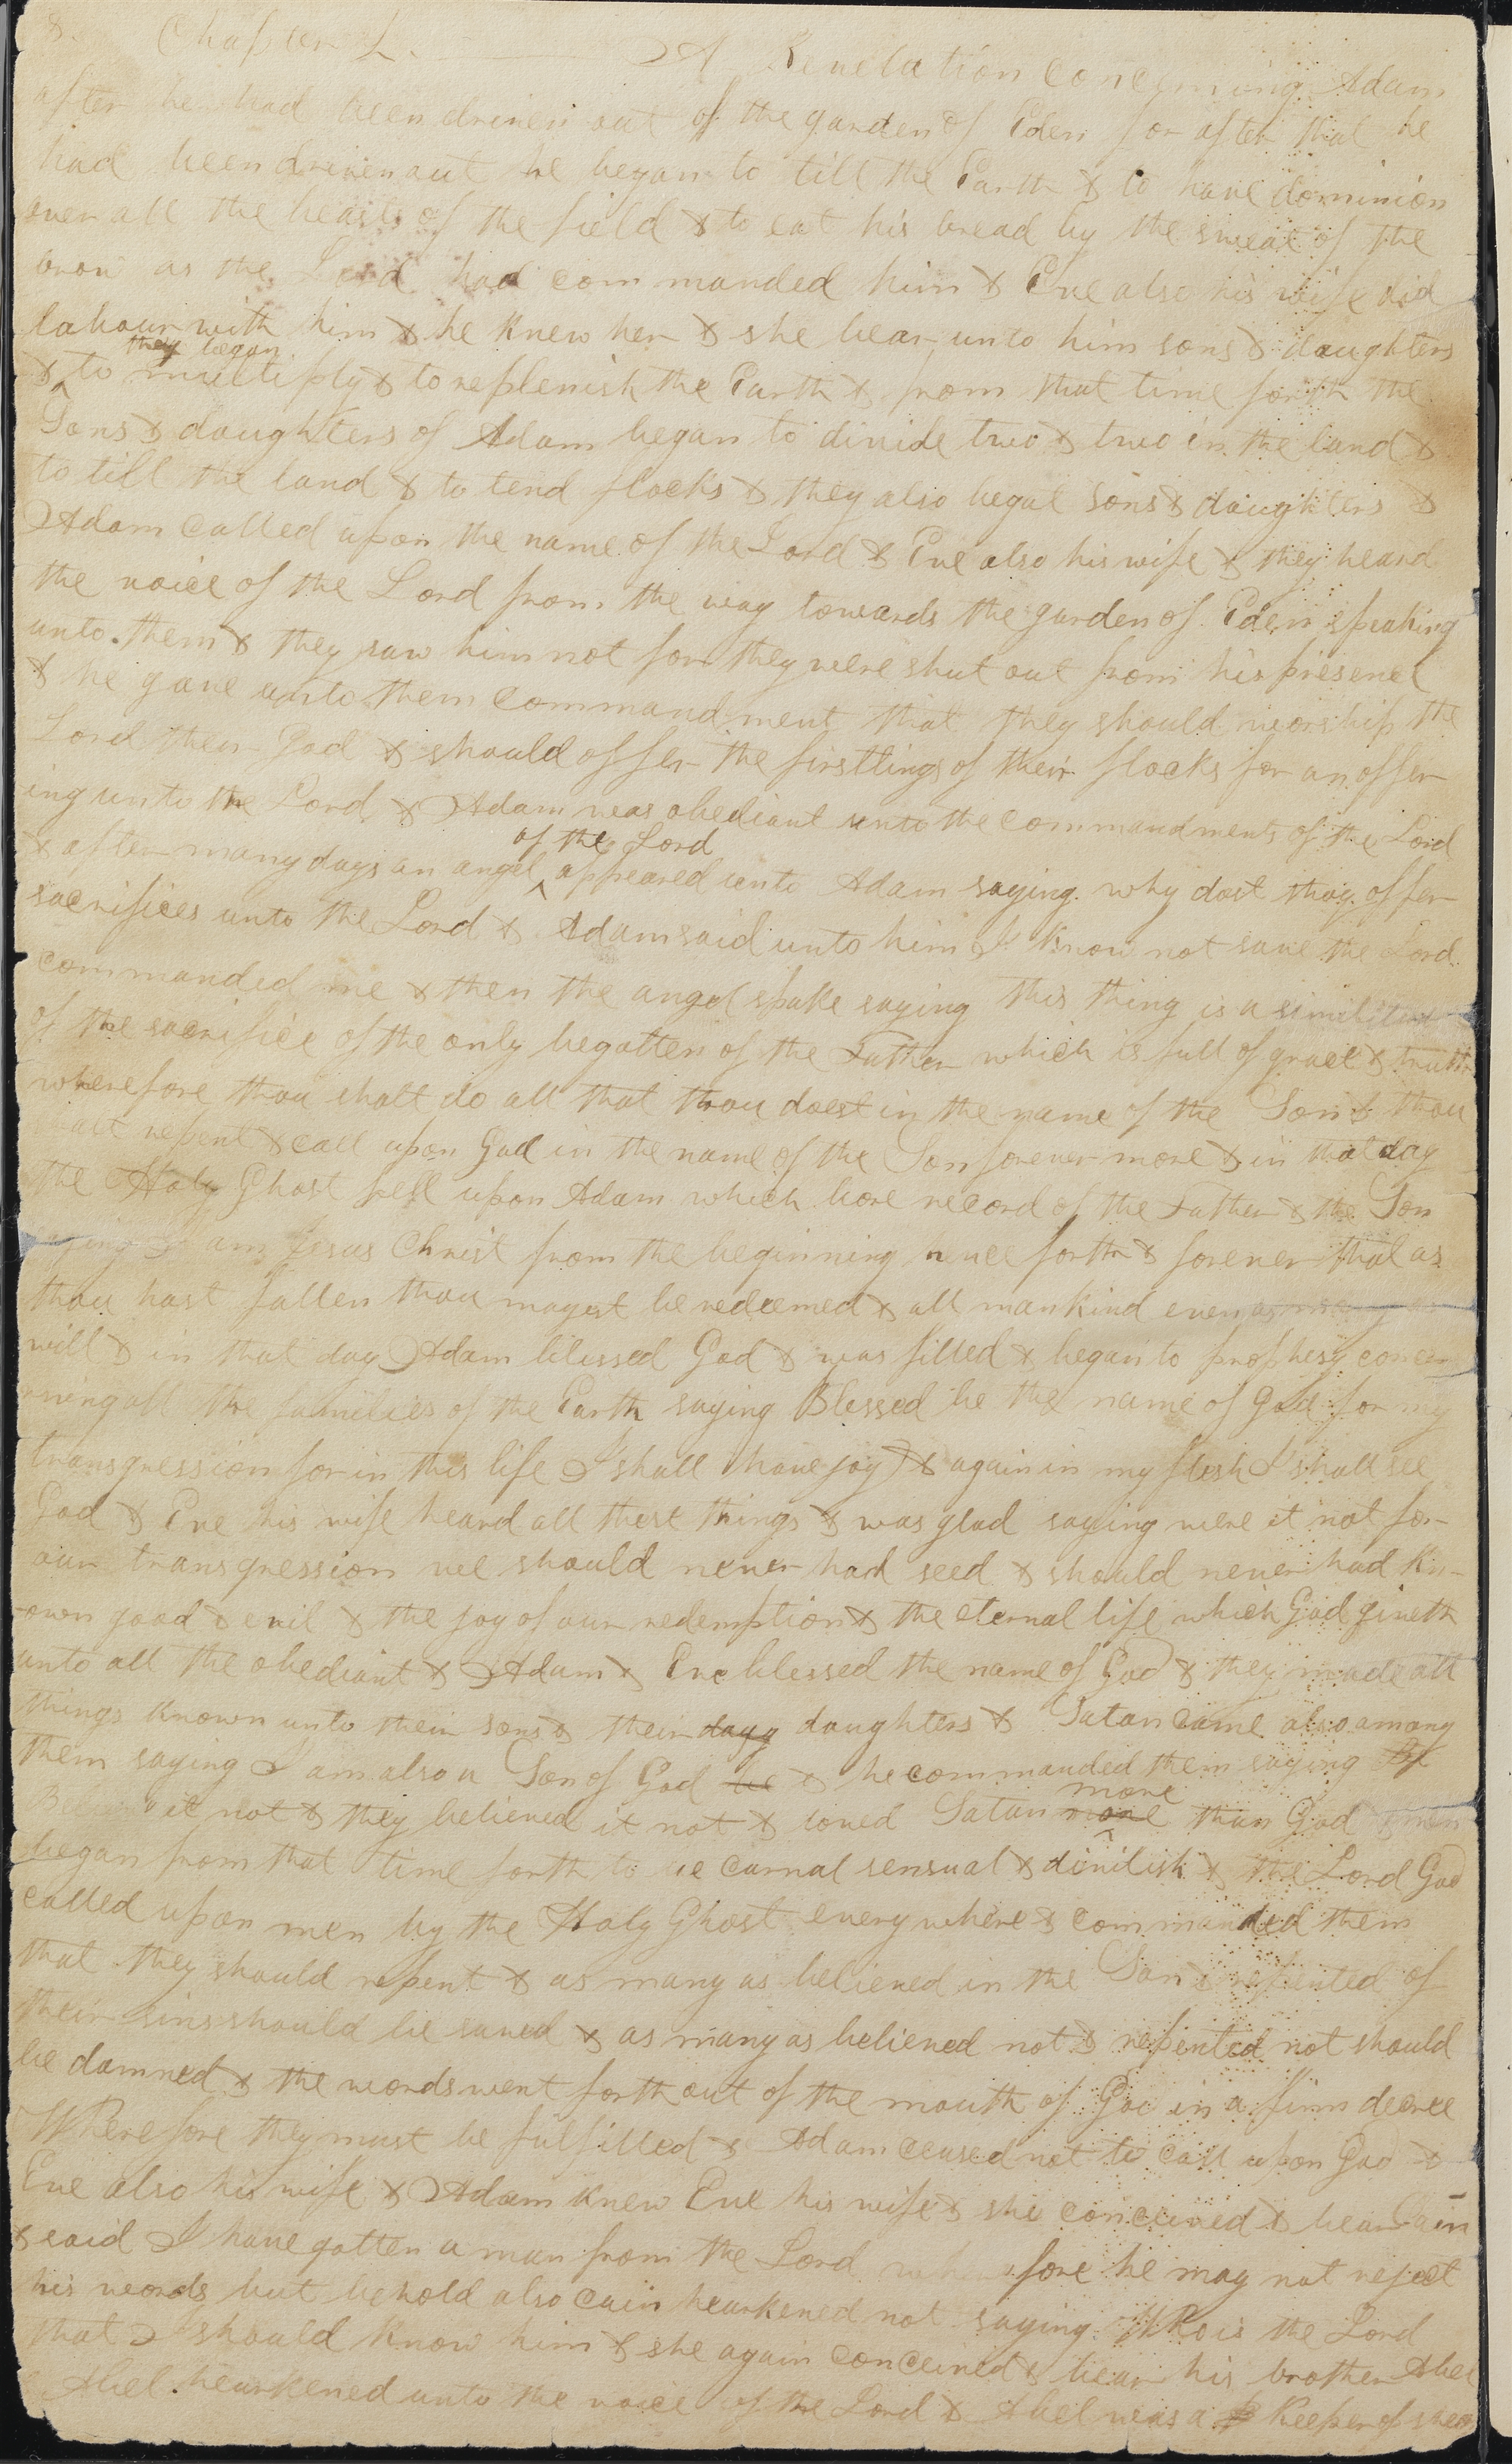 8. Chapter 2. A Revelation concerning Adam
after he had been driven out of the garden of Eden for after that he
had been driven out he began to till the Earth & to have dominion
over all the beasts of the field & to eat his bread by the sweat of the
brow as the Lord had commanded him & Eve also his wife did
labour with him & he knew her & she bear unto him sons & daughters
they began
& to multiply & to replenish the Earth & from that time forth the
Sons & daughters of Adam began to divide two & two in the land &
to till the land & to tend flocks & they also begat sons & daughters &
Adam called upon the name of the Lord & Eve also his wife & they heard
the voice of the Lord from the way towards the garden of Eden speaking
unto them & they saw him not for they were shut out from his presence
& he gave unto them commandment that they should worship the
Lord their God & should offer the firstlings of their flocks for an offer
ing unto the Lord & Adam was obediant unto the commandments of the Lord
of the Lord
& after many days an angel appeared unto Adam saying why dost thou offer
sacrifices unto the Lord & Adam said unto him I know not save the Lord
commanded me & then the angel spake saying this thing is a similitude
of the sacrifice of the only begotten of the Father which is full of grace & truth
wherefore thou shalt do all that thou doest in the name of the Son & thou
shalt repent & call upon God in the name of the Son forever more & in that day
the Holy Ghost fell upon Adam which bore record of the Father & the Son
saying I am Jesus Christ from the beginning hence forth & forever that as
thou hast fallen thou mayest be redeemed & all mankind even as many as
will & in that day Adam blessed God & was filled & began to prophesy concer
rning all the families of the Earth saying Blessed be the name of God for my
transgression for in this life I shall have joy & again in my flesh I shall see
God & Eve his wife heard all these things & was glad saying were it not for
our transgression we should never had seed & should never had kn-
-own good & evil & the joy of our redemption & the eternal life which God giveth
unto all the obediant & Adam & Eve blessed the name of God & they made all
things known unto their sons & their dayg daughters & Satan came also among
them saying I am also a Son of God he & he commanded them saying
more
Believe it not & they believed it not & loved Satan more than God & men
began from that time forth to be carnal sensual & divilish & the Lord God
called upon men by the Holy Ghost every where & commanded them
that they should repent & as many as believed in the Son & repented of
their sins should be saved & as many as believed not & repented not should
be damned & the words went forth out of the mouth of God in a firm decree
Wherefore they must be fulfilled & Adam ceased not to call upon God &
Eve also his wife & Adam knew Eve his wife & she conceived & bear Cain
& said I have gotten a man from the Lord wherefore he may not reject
his words but behold also Cain hearkened not saying Who is the Lord
that I should know him & she again conceived & bear his brother Abel
& Abel hearkened unto the voice of the Lord & Abel was a keeper of sheep